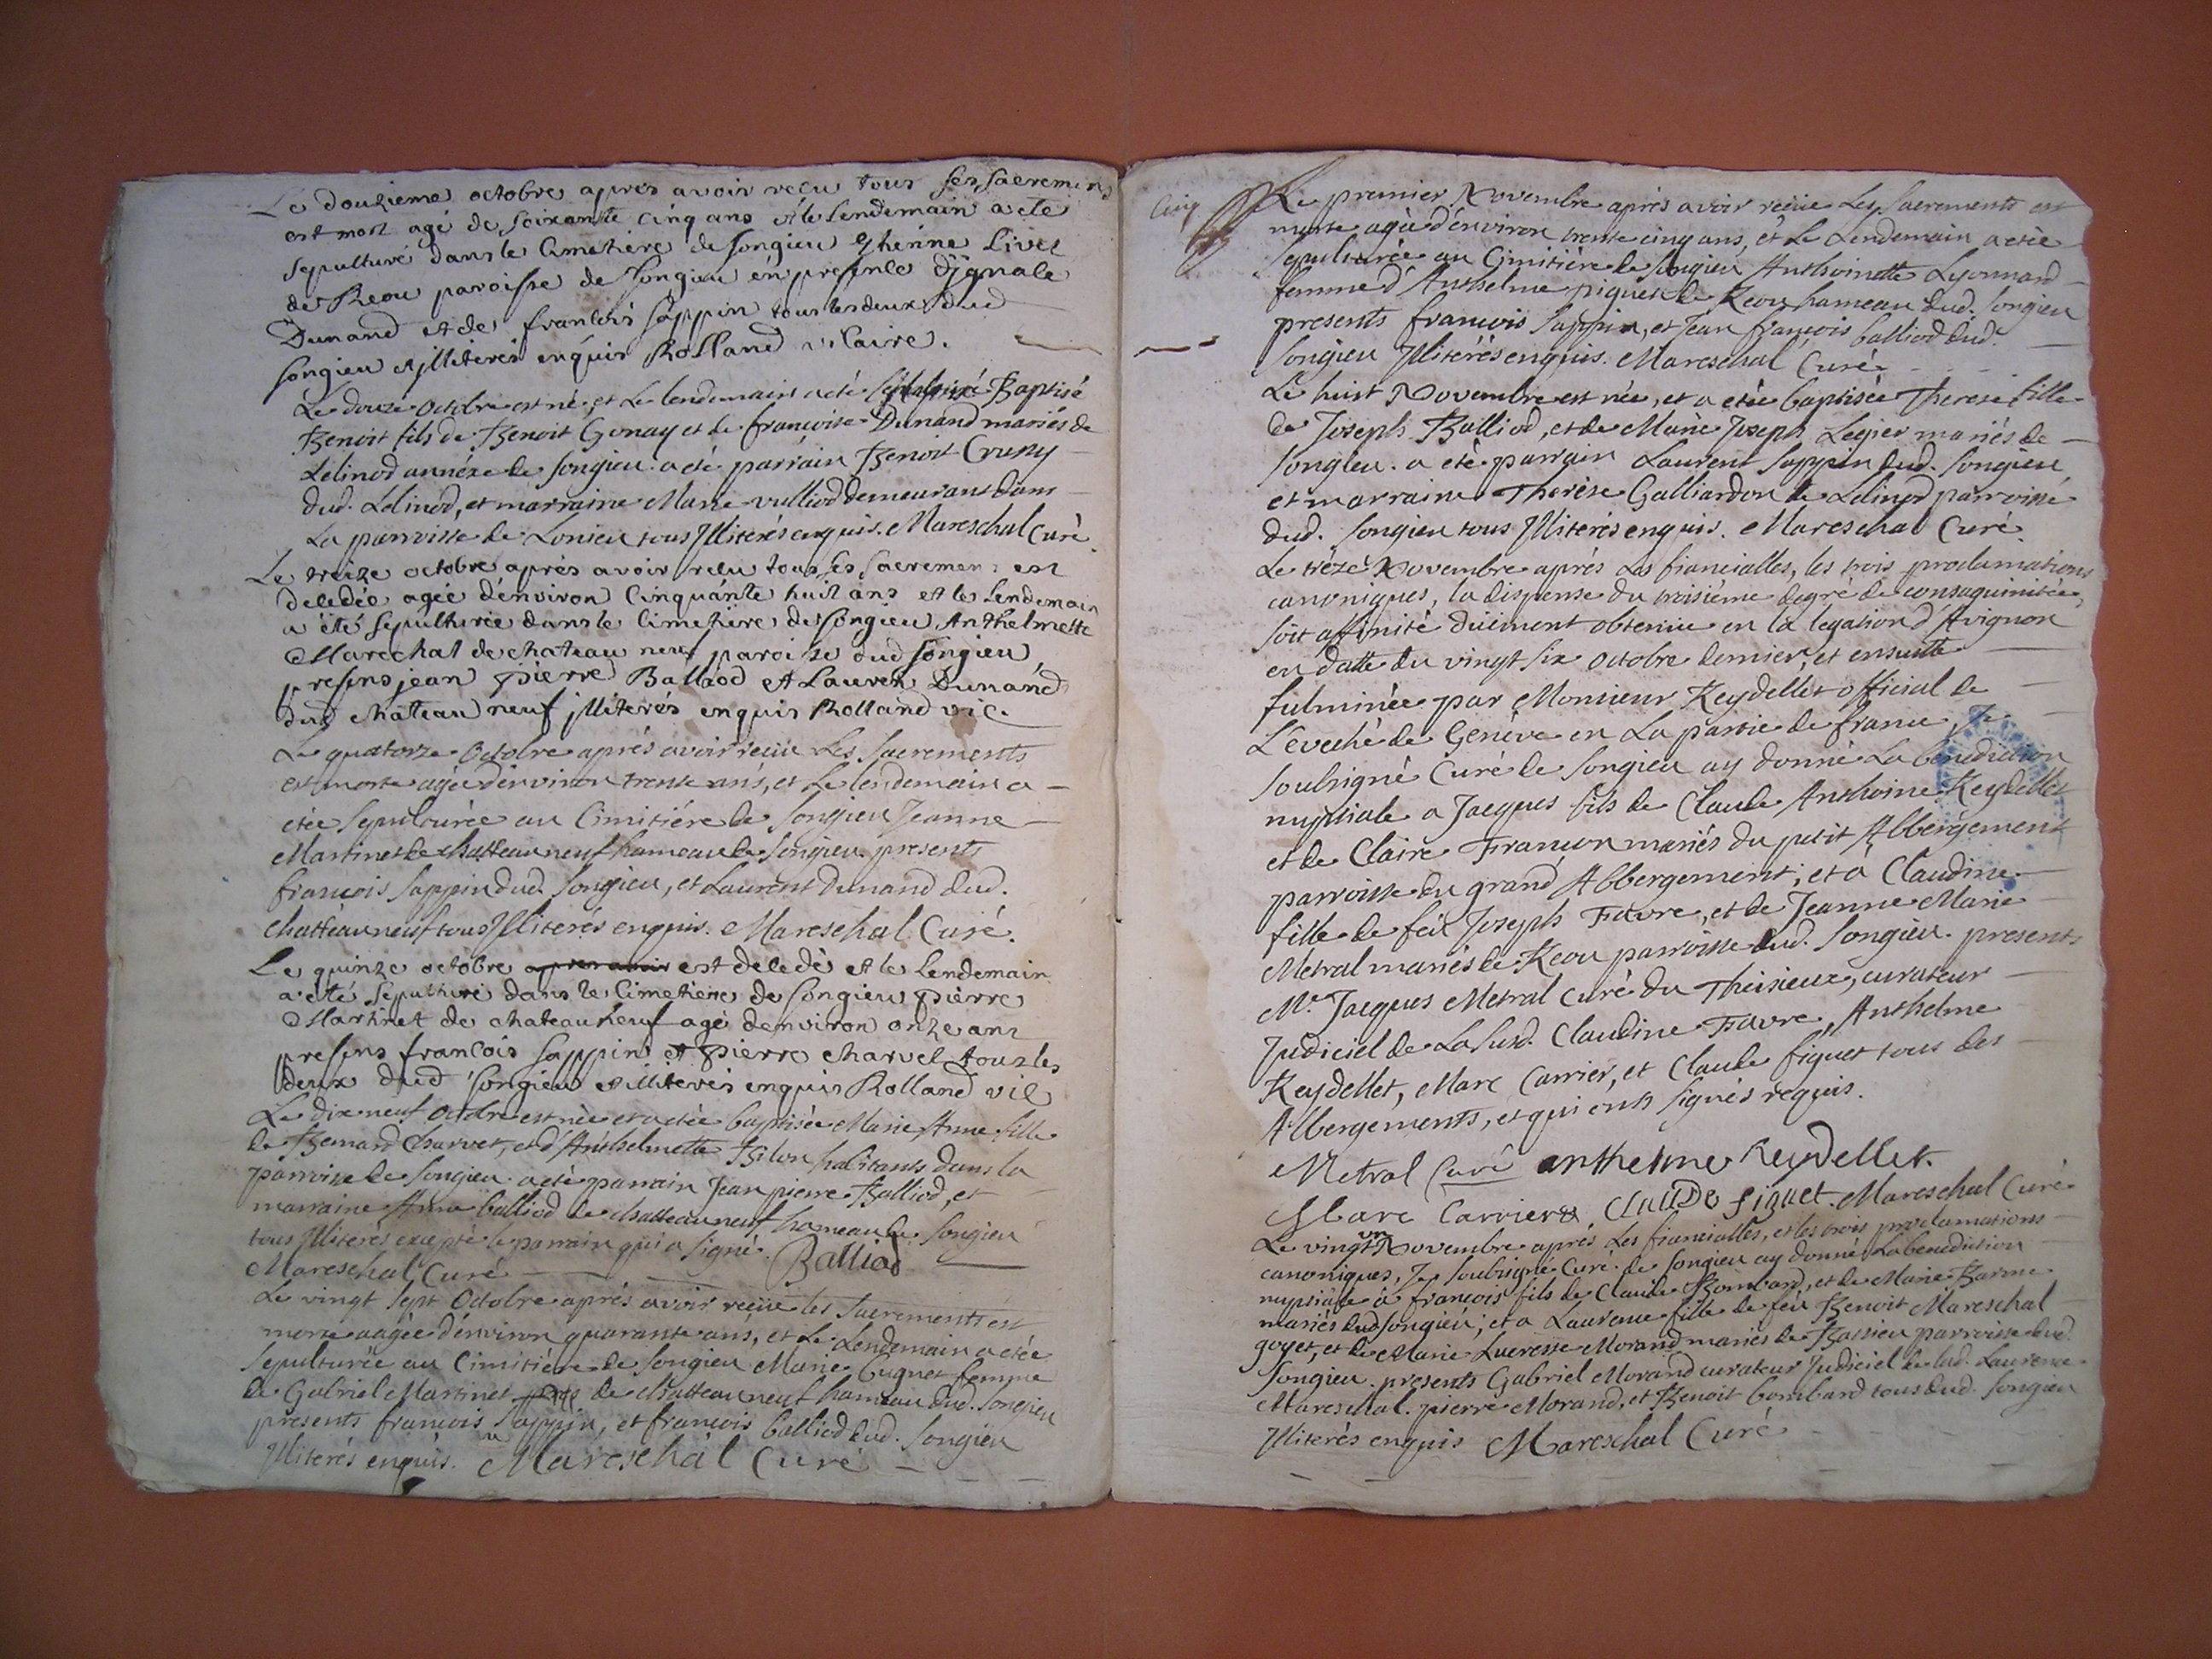 Le douzieme octobre apres avoir recu tous ses sacremens
est mort agé de soixante cinq ans et le lendemain a eté
sepulturé dans le cimetière de songieu Livet
de Reou paroisse de songieu en presence
Dunand et de francois sappin tous les deux dud
songieu et illiterés enquis Rolland vicaire.
Le douze octobre est né, et Le lendemain a eté Baptisé
Benoit fils de Benoit Gonay et de francoise Dunand mariés de
Lelinod annéxe de songieu. a eté parrain Benoit
dud. Lelinod, et marraine Marie vulliod demeurant dans
La parroisse de tous Illiterés enquis. Mareschal Curé.
Le treize octobre aprés avoir recu tous ses sacremens est
decedée agée d'environ cinquante huit ans et le lendemain
a été sepulturée dans le cimetière de songieu Anthelmette
Marechal de chateau neuf paroisse dud songieu,
presens jean pierre Balliod et Laurent Dunand
dud chateau neuf illiterés enquis Rolland vic.
Le quatorze Octobre aprés avoir reçüe Les sacrements
est morte agée d'environ trente ans, et Le lendemain a
etée sepulturée au Cimitiére de songieu Jeanne
Martinet de chatteauneuf hameau de songieu. presents
francois sappin dud. songieu, et Laurent Dunand dud.
chatteauneuf tous Illiterés enquis. Mareschal Curé.
Le quinze octobre apres avoir est decedé et le lendemain
a eté sepulturé dans le cimetiere de songieu pierre
Martinet de chateauneuf agé d'environ onze ans
presens francois sappin et pierre charvet tous les
deux dud songieu et illiterés enquis Rolland vic
Le dix neuf Octobre est née et a etée baptisée Marie Anne fille
de Bernard Charvet, et d'Anthelmette habitants dans la
parroisse de songieu. a eté parrain Jean pierre Balliod, et
marraine Anne balliod de chatteauneuf hameau de songieu
tous Illiterés excepté le parrain qui a signé. Balliod
Mareschal Curé
Le vingt sept Octobre aprés avoir reçüe les sacrements est
morte aagée d'environ quarante ans, et Le Lendemain a etée
sepulturée au Cimitiére de songieu Marie femme
de Gabriel Martinet de chatteauneuf hameau dud. songieu
presents francois sappin, et francois balliod dud. songieu
Illiterés enquis. Mareschal Curé
Cinq
Le premier Novembre aprés avoir reçüe Les sacrements est
morte agée d'environ trente cinq ans, et Le Lendemain a etée
sepulturée au Cimitiére de songieu Anthoinette Lyonnard
femme d'Anthelme piquet de Reou hameau dud. songieu
presents francois sappin, et Jean francois balliod dud.
songieu Illiterés enquis. Mareschal Curé
Le huit Novembre est née, et a etée baptisée Therese fille
de Joseph Balliod, et de Marie Joseph Legier mariés de
songieu. a eté parrain Laurent sappin dud. songieu
et marraine Therèse Galliardon de Lelinod parroisse
dud. songieu tous Illiterés enquis. Mareschal Curé.
Le trèze Novembre aprés Les fiancialles, les trois proclamations
canoniques, la dispense du troisiéme degré de consaguinitée,
soit affinité düement obtenüe en la legation d'Avignon
en datte du vingt six octobre dernier, et ensuitte
fulminée par Monsieur Reydellet official de
L'eveché de Genéve en La partie de france, Je
soubsigné Curé de songieu ay donné La benediction
nuptiale a Jacques fils de Claude Anthoine Reydellet
et de Claire Francon mariés du petit Abbergement
parroisse du grand Abbergement, et à Claudine
fille de feu Joseph Favre, et de Jeanne Marie
Metral mariés de Reou parroisse dud. songieu. presents
Mr. Jacques Metral curé du Theisieux, curateur
Judiciel de La susd. Claudine Favre, Anthelme
Reydellet, Marc Carrier, et Claude figuet tous des
Abbergements, et qui ont signés requis.
Metral Curé anthelme Reydellet.
Marc Carrier. CLAUDE figuet. Mareschal Curé
Le vingt un Novembre aprés Les fiancialles, et les trois proclamations
canoniques, Je soubsigné Curé de songieu ay donné La benediction
nuptiale à francois fils de Claude Bombard, et de Marie Barme
mariés dud songieu; et a Laurence fille de feu Benoit Mareschal
goyet, et de Marie Lucresse Morand mariés de Bassieu parroisse dud.
songieu. presents Gabriel Morand curateur Judiciel de lad. Laurence
Mareschal. pierre Morand, et Benoit bombard tous dud. songieu
Illiterés enquis Mareschal Curé